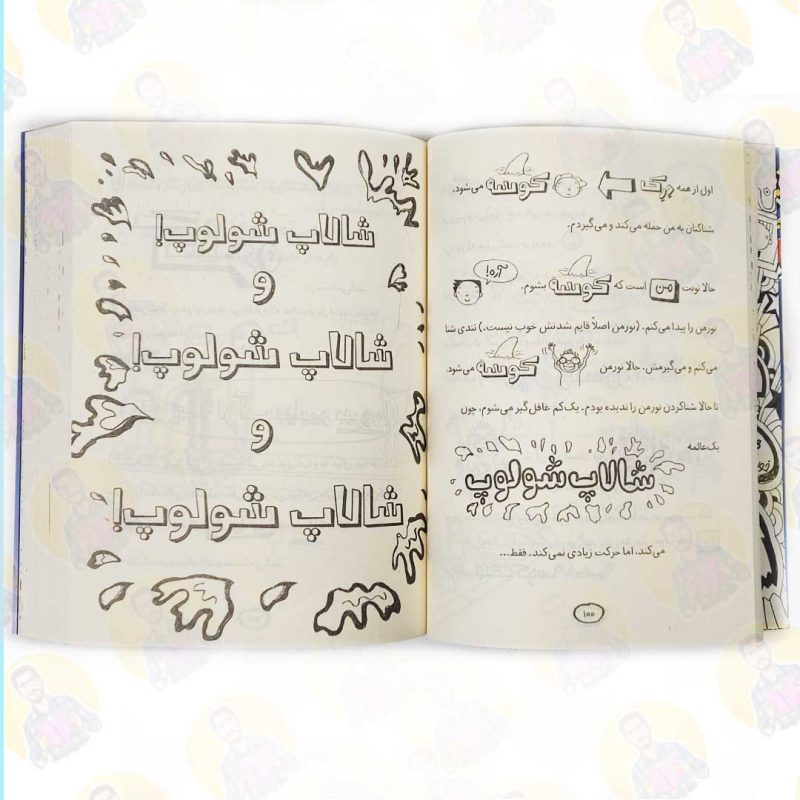 اول از همه دِرِک کوسه می‌شود.
شناکنان به من حمله می‌کند و می‌گیردم.
حالا نوبت من است که کوسه بشوم.
آره!
نورمن را پیدا می‌کنم. (نورمن اصلاً قایم شدنش خوب نیست.) تندی شنا
می‌کنم و می‌گیرمش. حالا نورمن کوسه می‌شود.
تا حالا شناکردن نورمن را ندیده بودم. یک‌کم غافل‌گیر می‌شوم، چون
یک‌عالمه
شالاپ شولوپ
می‌کند. اما حرکت زیادی نمی‌کند. فقط...
۱۰۰
شالاپ شولوپ!
و
شالاپ شولوپ!
و
شالاپ شولوپ!